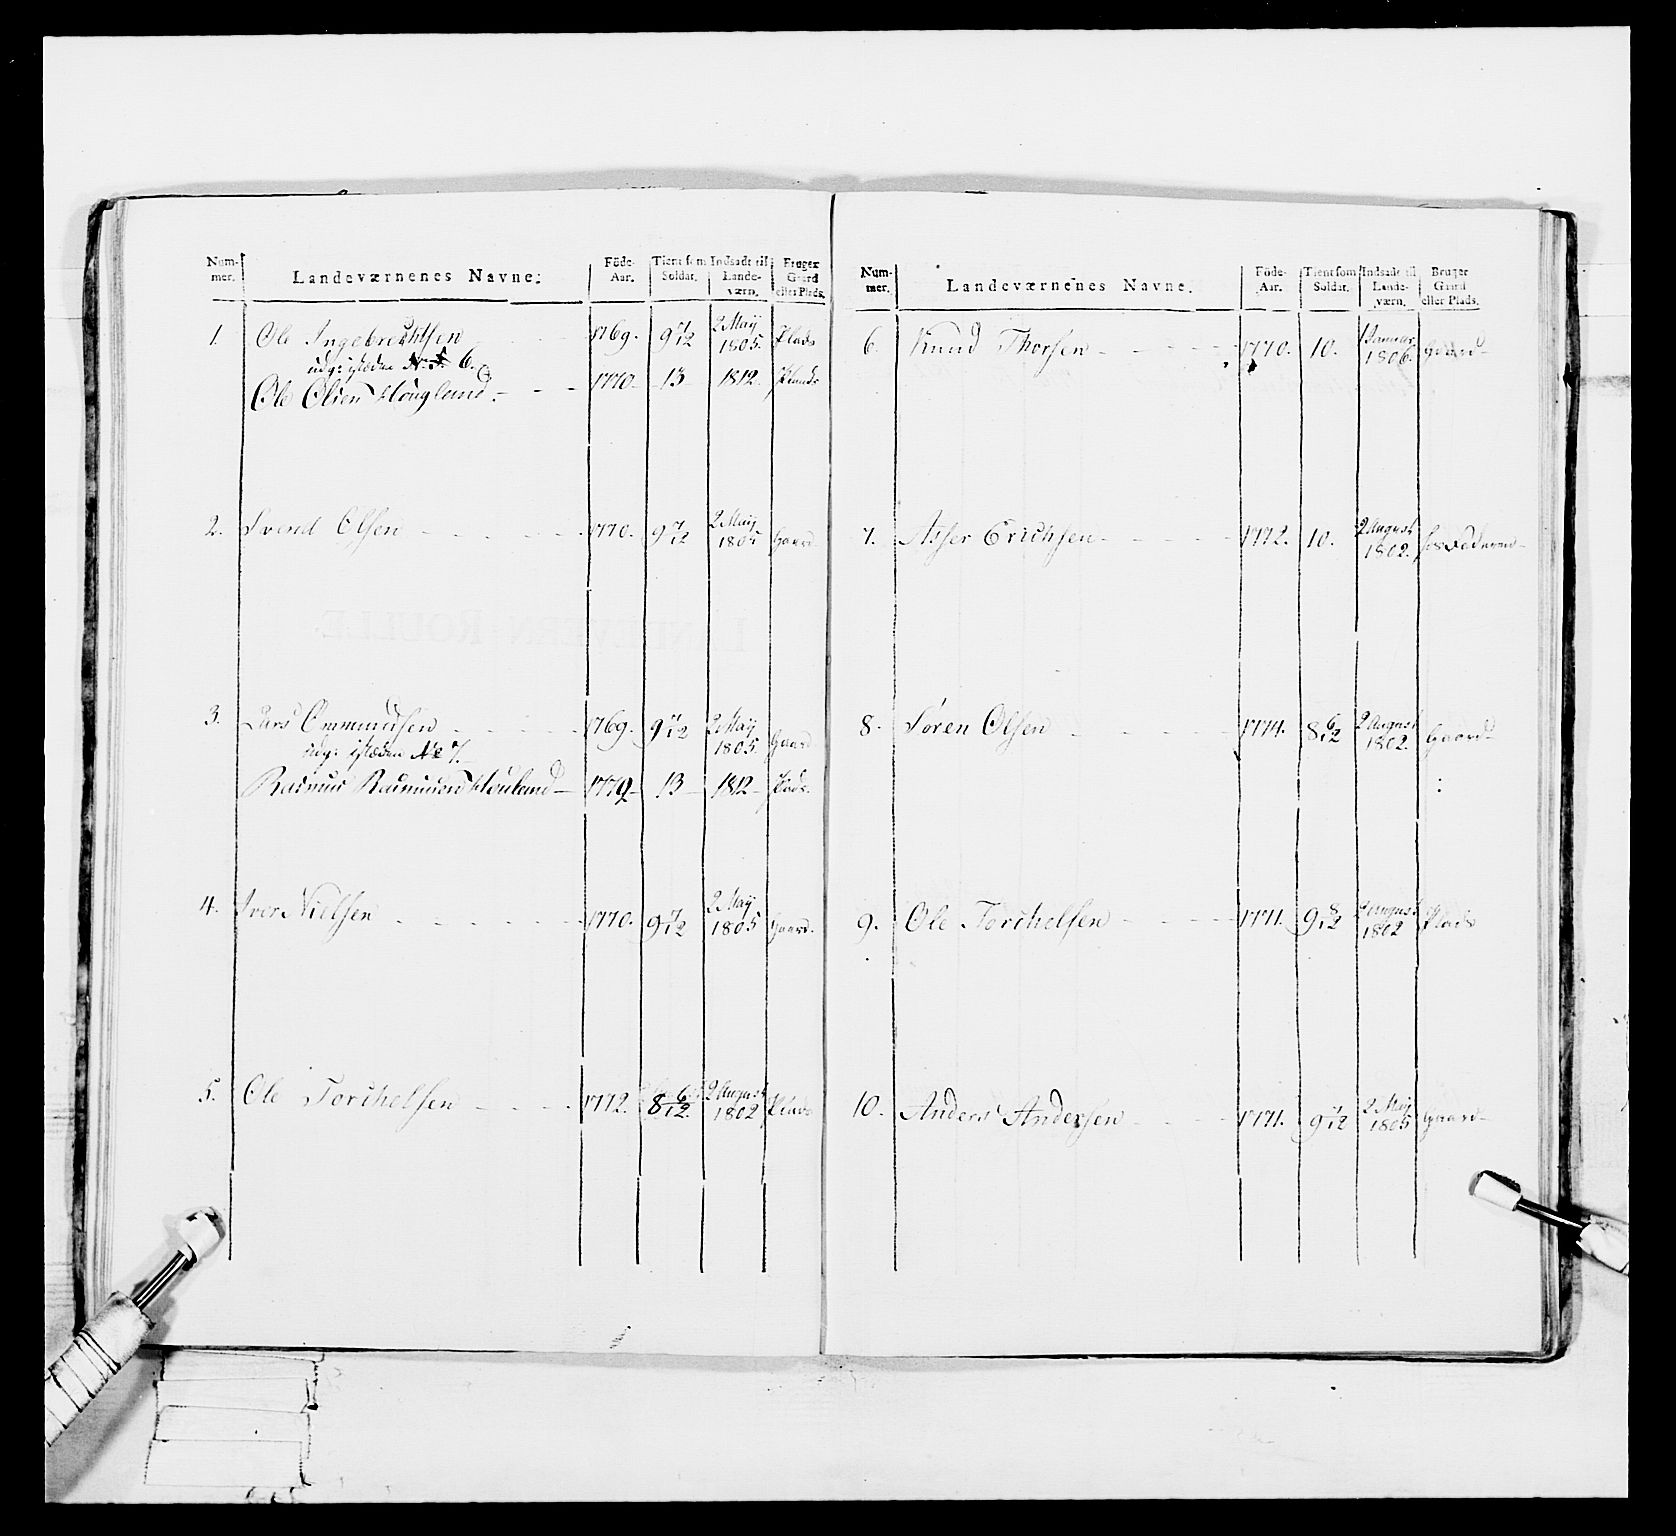 Num-mer. Landeværnenes Navne. Föde-Aar. Tient som Soldat. Indsadt til Lande-værn. Bruger Gaard eller Plads.
1. Ole Ingebrechtsen 1769. 9 7/12 2 May 1805. Plads
udg: isteden No 6.
Ole Olsen Hougland 1770 13 1812 Plads
2. Svend Olsen 1770. 9 7/12 2 May 1805 Gaard
3. Lars Ommundsen 1769. 9 7/12 2 May 1805 Gaard
udg: isteden No 7.
Rasmus Rasmusen Houland 1779 13 1812 Plads.
4. Iver Nielsen 1770. 9 7/12 2 May 1805 Gaard.
5. Ole Torchelsen 1772. 8 6/12 2 August 1802 Plads
Num-mer. Landeværnenes Navne. Föde-Aar. Tient som Soldat. Indsadt til Lande-værn. Bruger Gaard eller Plads.
6. Knud Thorsen 1770. 10. 1 Januar 1806. Gaard
7. Asser Erichsen 1772. 10. 2 August 1802. hos Faderen
8. Søren Olsen 1774. 8 6/12 2 August 1802. Gaard
9. Ole Torchelsen 1771. 9 8/12 2 August 1802 Plads
10. Anders Andersen 1771. 9 7/12 2 May 1805 Gaard